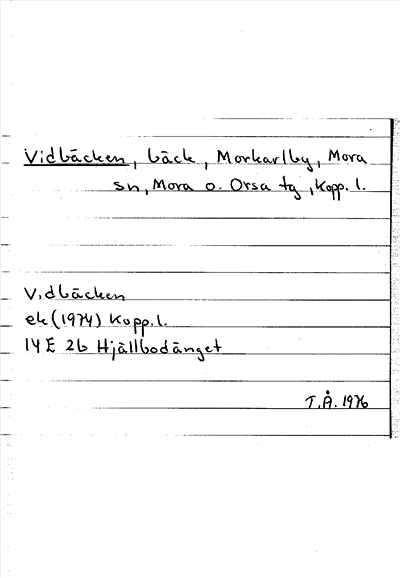 Vidbäcken, bäck, Morkarlby, Mora
sn, Mora o. Orsa tg, Kopp. l.
Vidbäcken
ek (1974) Kopp. l.
14 E 2b Hjällbodänget
T.Å. 1976